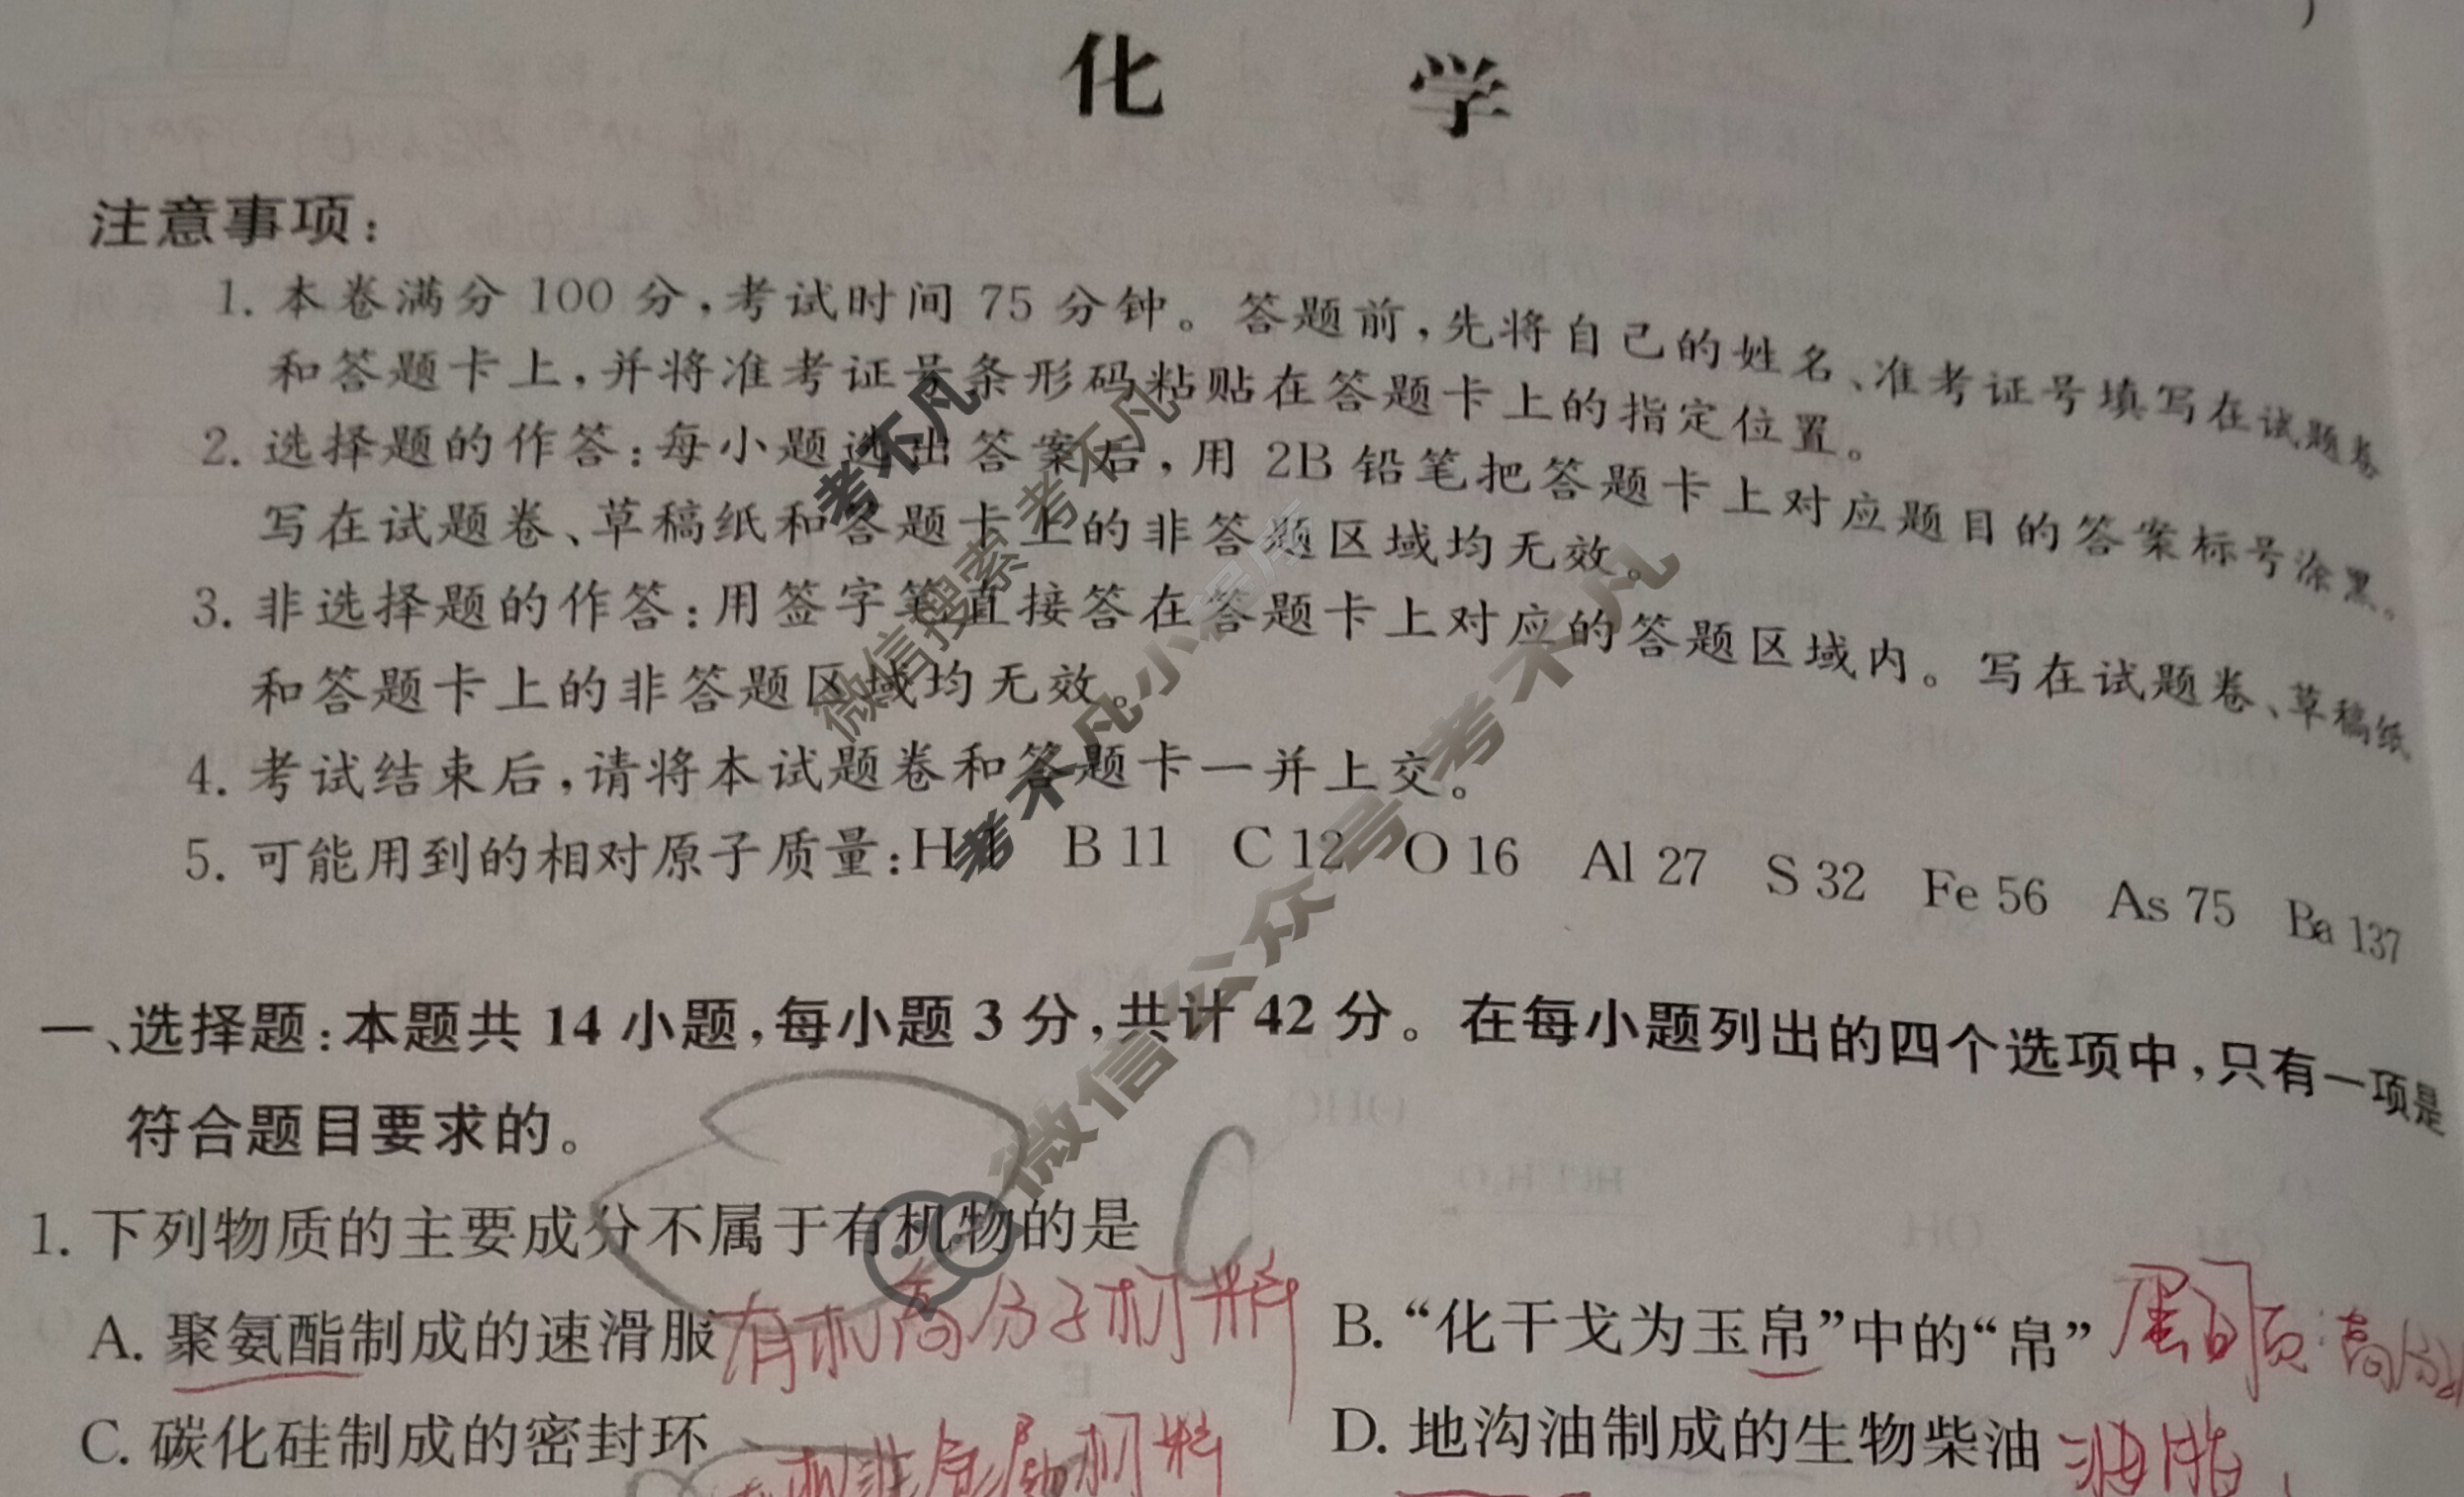 化 学
注意事项:
1. 本卷满分 100 分,考试时间 75 分钟。答题前,先将自己的姓名、准考证号填写在试题卷
和答题卡上,并将准考证号条形码粘贴在答题卡上的指定位置。
2. 选择题的作答:每小题选出答案后,用 2B 铅笔把答题卡上对应题目的答案标号涂黑。
写在试题卷、草稿纸和答题卡上的非答题区域均无效。
3. 非选择题的作答:用签字笔直接答在答题卡上对应的答题区域内。写在试题卷、草稿纸
和答题卡上的非答题区域均无效。
4. 考试结束后,请将本试题卷和答题卡一并上交。
5. 可能用到的相对原子质量:H 1 B 11 C 12 O 16 Al 27 S 32 Fe 56 As 75 Ba 137
一、选择题:本题共 14 小题,每小题 3 分,共计 42 分。在每小题列出的四个选项中,只有一项是
符合题目要求的。
1. 下列物质的主要成分不属于有机物的是 C
A. 聚氨酯制成的速滑服 有机高分子材料
B. “化干戈为玉帛”中的“帛” 蛋白质:高分
C. 碳化硅制成的密封环 机非金属材料
D. 地沟油制成的生物柴油 油脂
考不凡
微信搜索 考不凡
考不凡小程序
微信公众号 考不凡